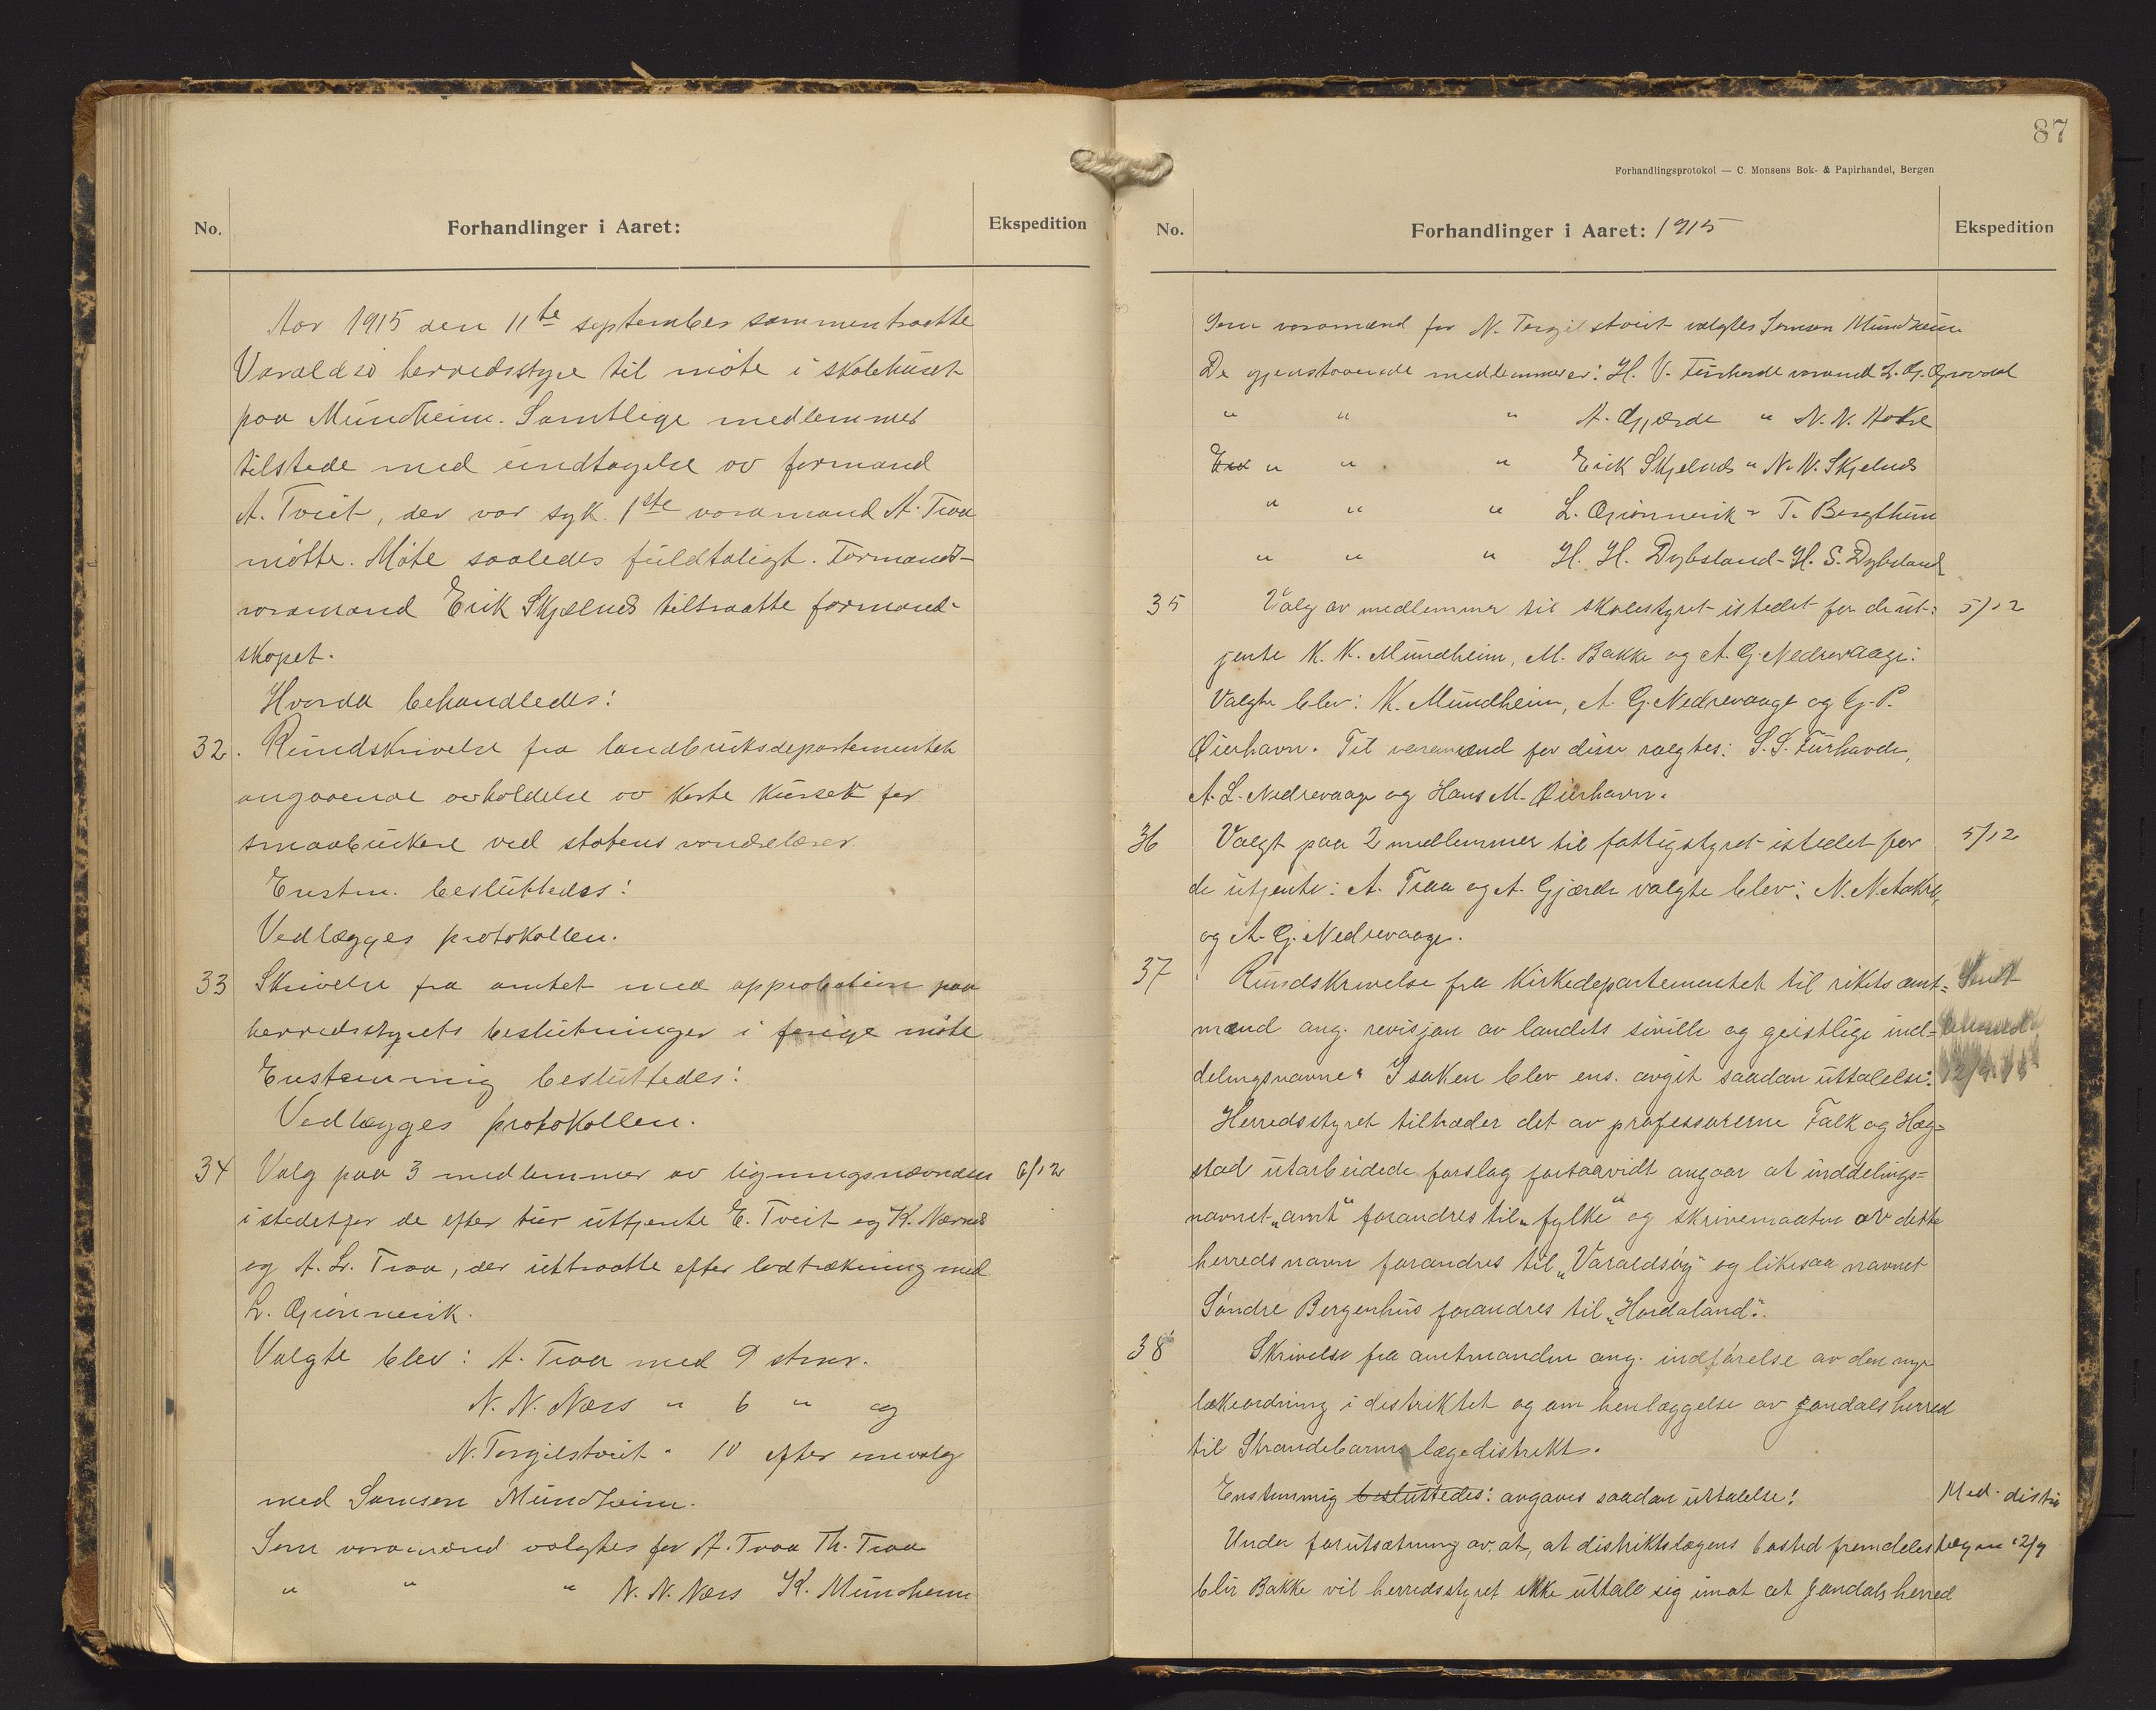 No.
Forhandlinger i Aaret:
Ekspedition
Aar 1915 den 11te september sammentraatte
Varaldsö herredsstyre til möte i skolehuset
paa Mundheim. Samtlige medlemmer
tilstede med undtagelse av formand
A. Tveit, der var syk. 1ste varamand A. Traa
mötte. Möte saaledes fuldtaligt. Formands-
varamand Erik Skjelnes tiltraatte formand-
skapet.
Hvorda behandledes:
32. Rundskrivelse fra landbruksdepartementet
angaaende avholdelse av korte kurser for
smaabrukere ved statens vandrelærer
Enstm. besluttedes:
Vedlægges protokollen.
33 Skrivelse fra amtet med approbation paa
herredsstyrets beslutninger i forige möte
Enstemmig besluttedes:
Vedlægges protokollen.
34 Valg paa 3 medlemmer av ligningsnævnden 6/12
istedetfor de efter tur uttjente E. Tveit og K. Nærnes
og A. Lr. Traa, der uttraatte efter lodtrækning med
L. Gjönnevik.
Valgte blev: A. Traa med 9 stmr.
N. N. Næss " 6 " og
N. Torgilstveit " 10 efter omvalg
med Samson Mundheim.
Som varamænd valgtes for A. Traa Th. Traa
" " " N. N. Næss K. Mundheim
87
Forhandlingsprotokol — C. Monsens Bok- & Papirhandel, Bergen
No.
Forhandlinger i Aaret: 1915
Ekspedition
Som varamænd for N. Torgilstveit valgtes Samson Mundheim
De gjenstaaende medlemmer er: H. V. Furhovde varamd L. G.
" " " A. Gjærde " N. N. Aakre
" " " Erik Skjelnes " N. N. Skjelnes
" " " L. Gjönnevik " T. Bergthun
" " " H. H. Dybsland - H. S. Dybsland
35 Valg av medlemmer til skolestyret istedet for de ut- 5/12
jente K. K. Mundheim, M. Bakke og A. G. Nedrevaage:
Valgte blev: K. Mundheim, A. G. Nedrevaage og G. P.
Öierhavn. Til varamænd for disse valgtes: S. S. Furhovde,
A. L. Nedrevaage og Hans M. Öierhavn.
36 Valgt paa 2 medlemmer til fattigstyret istedet for 5/12
de utjente: A. Traa og A. Gjærde valgte blev: N. N. Aakre,
og A. G. Nedrevaage.
37 Rundskrivelse fra Kirkedepartementet til rikets amt= Sendt
mænd ang. revisjon av landets siville og geistlige ind-
delingsnavne. I saken blev ens. avgit saadan uttalelse: 12/9 15
Herredsstyret tiltræder det av professorerne Falk og Hæg=
stad utarbeidede forslag forsaavidt angaar at inddelings=
navnet „amt“ forandres til „fylke“ og skrivemaaten av dette
herreds navn forandres til „Varaldsöy“ og likesaa navnet
Söndre Bergenhus forandres til „Hordaland“.
38 Skrivelse fra amtmanden ang. indförelse av den nye
lækeordning i distriktet og om henlæggelse av Jondals herred
til Strandebarms lægedistrikt.
Enstemmig besluttedes: avgaves saadan uttalelse: Med. distr.
Under forutsætning av at, at distriktslægens bosted fremdeles 12/9
blir Bakke vil herredsstyret ikke uttale sig imot at Jondals herred